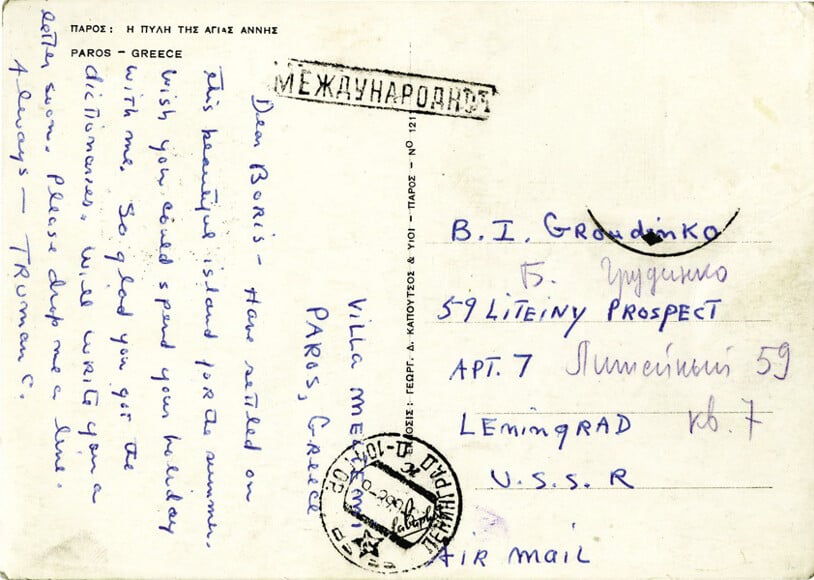 ΠΑΡΟΣ: Η ΠΥΛΗ ΤΗΣ ΑΓΙΑΣ ΑΝΝΗΣ
PAROS – GREECE
МЕЖДУНАРОДНОЕ
Dear Boris – Have settled on
this beautiful island for the summer.
Wish you could spend your holiday
with me. So glad you got the
dictionaries. Will write you a
letter soon. Please drop me a line.
Always – TRUMAN C.
Villa
PAROS, Greece
ΕΚΔΟΣΙΣ: ΓΕΩΡΓ. Δ. ΚΑΠΟΥΤΣΟΣ & ΥΙΟΙ – ΠΑΡΟΣ – Νο 121
B. I. GROUDINKO
Б. Грудинко
59 LITEINY PROSPECT
APT. 7 Литейный 59
LENINGRAD кв. 7
U.S.S.R
AIR MAIL
ЛЕНИНГРАД